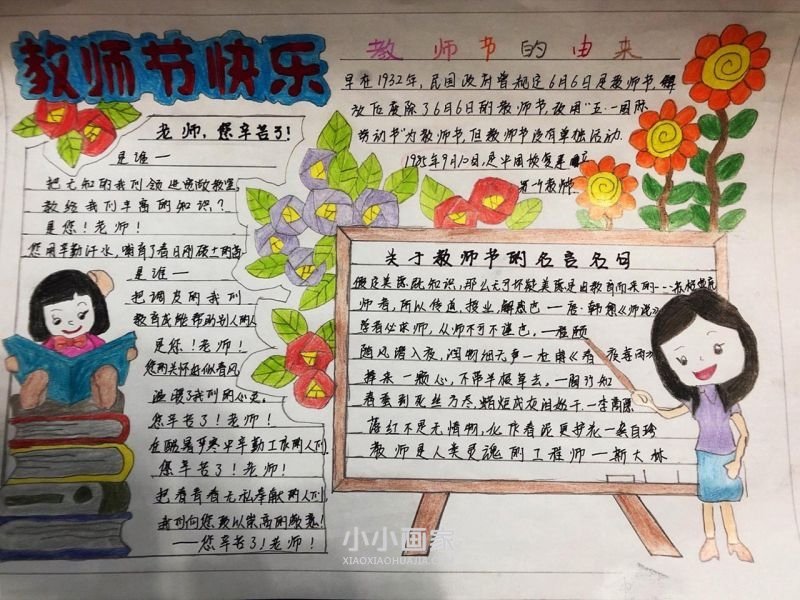 教师节快乐
老师,您辛苦了!
是谁一
把无知的我们领进宽敞教室,
教给我们丰富的知识?
是您!老师!
您用辛勤汗水,哺育了春日刚破土的
是谁一
把调皮的我们
教育成能帮助别人的人
是您!老师!
您的关怀好似春风
温暖了我们的心灵,
您辛苦了!老师!
在酷暑寒冬中辛勤工作的人们
您辛苦了!老师!
把青春无私奉献的人们
我们向您致以崇高的敬意!
——您辛苦了!老师!
教师节的由来
早在1932年,民国政府曾规定6月6日是教师节,解
放后废除了6月6日的教师节,改用"五·一国际
劳动节"为教师节,但教师节没有单独活动.
1985年9月10日,是中国恢复建立
第一个教师
关于教师节的名言名句
师者,所以传道,授业,解惑也一唐·韩愈《师说》
随风潜入夜,润物细无声一杜甫《春夜喜雨》
捧来一颗心,不带半根草去,一陶行知
春蚕到死丝方尽,蜡炬成灰泪始干.一李商隐
落红不是无情物,化作春泥更护花一龚自珍
教师是人类灵魂的工程师一斯大林
小小画家
XIAOXIAOHUAJIA.COM